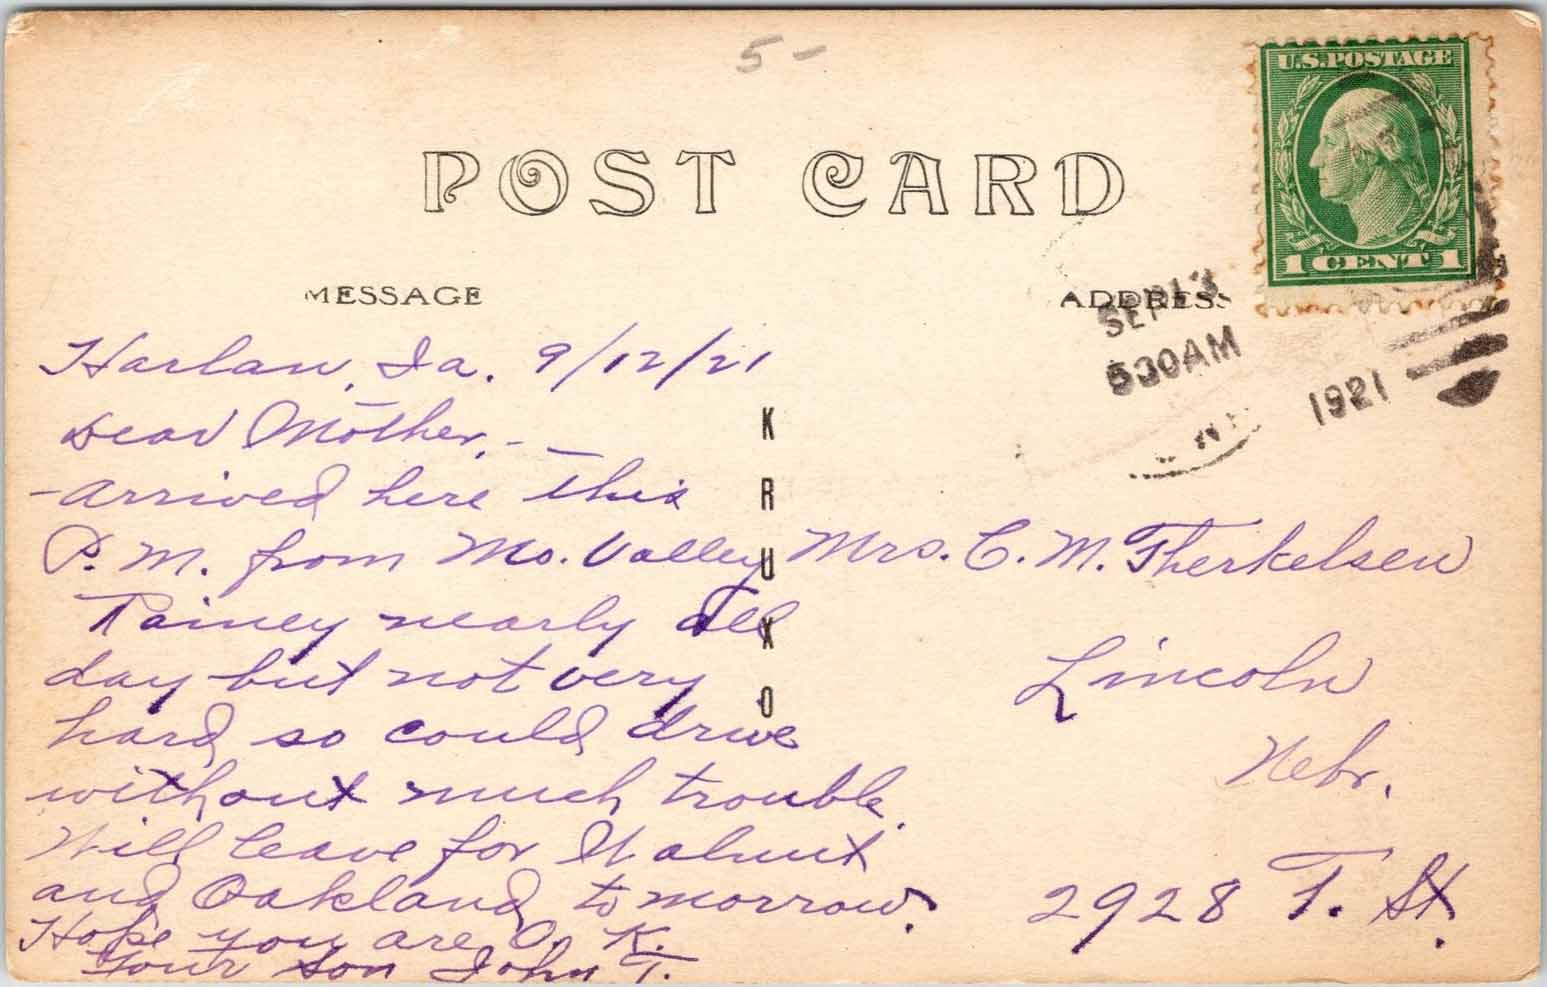 5-
U.S. POSTAGE
1 CENT 1
POST CARD
MESSAGE
ADDRESS
SEP 13
530 AM
1921
KRUXO
Harlan, Ia. 9/12/21
Dear Mother,-
-arrived here this
P.M. from Mo. Valley
Rainey nearly all
day but not very
hard so could drive
without much trouble.
Will leave for Walnut
and Oakland tomorrow.
Hope you are O.K.
Your son John T.
Mrs. C. M. Therkelsen
Lincoln
Nebr.
2928 T. St.